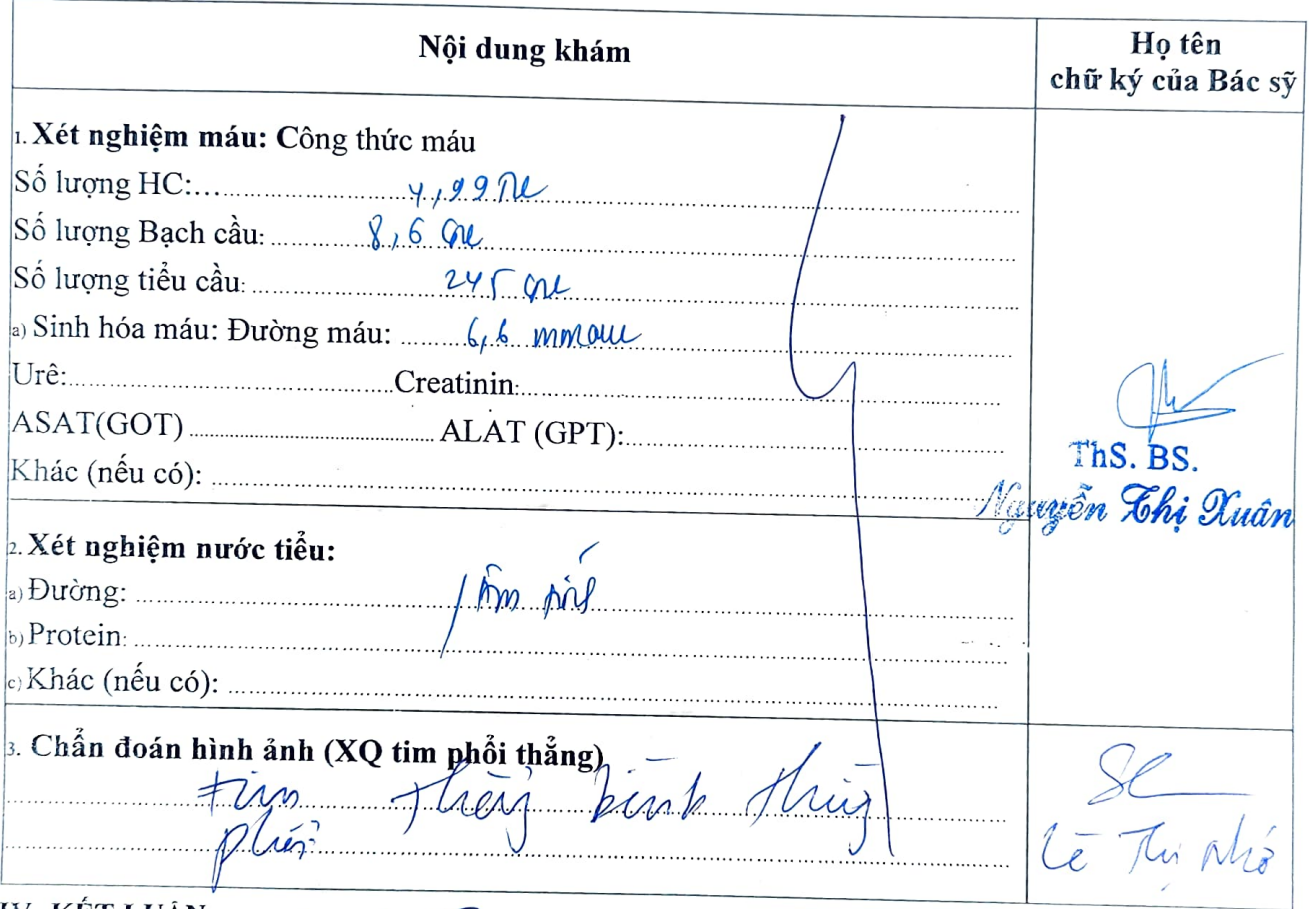 Nội dung khám
Họ tên
chữ ký của Bác sỹ
1. Xét nghiệm máu: Công thức máu
Số lượng HC:... 4,99
Số lượng Bạch cầu: 8,6
Số lượng tiểu cầu: 245
a) Sinh hóa máu: Đường máu: 6,6
Urê: Creatinin:
ASAT(GOT) ALAT (GPT):
Khác (nếu có):
ThS. BS.
Nguyễn Thị Xuân
2. Xét nghiệm nước tiểu:
a) Đường: Âm
b) Protein:
c) Khác (nếu có):
3. Chẩn đoán hình ảnh (XQ tim phổi thẳng)
tim thẳng bình thường
phổi
Lê Thị Nhớ
IV. KẾT LUẬN